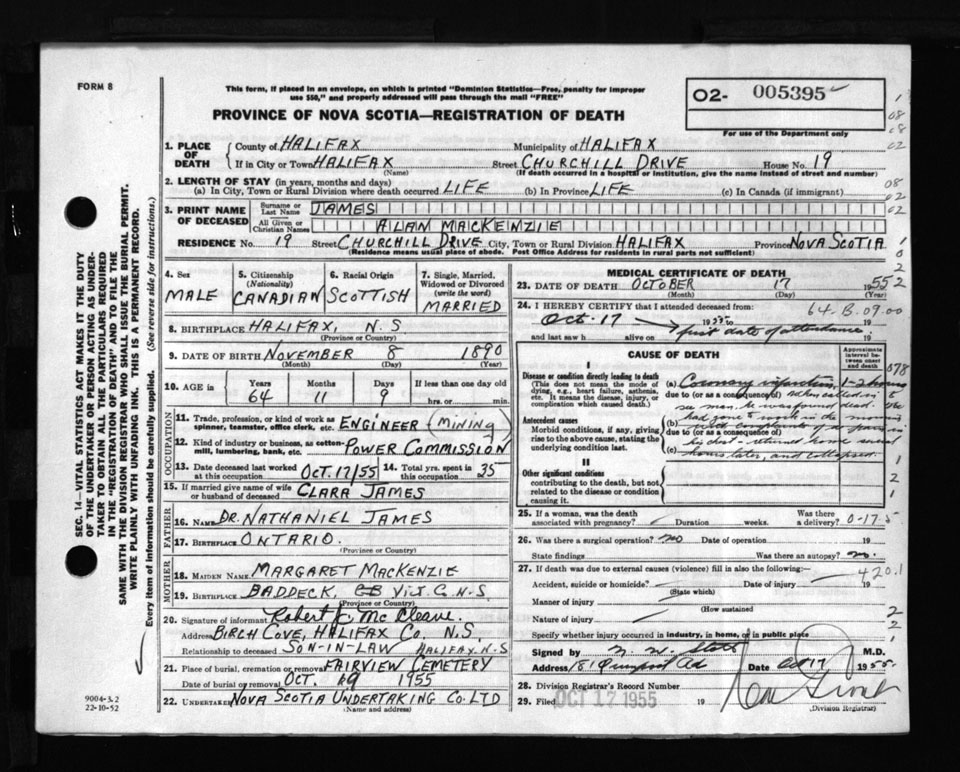 FORM 8
This form, if placed in an envelope, on which is printed "Dominion Statistics—Free, penalty for improper
use $50," and properly addressed will pass through the mail "FREE"
PROVINCE OF NOVA SCOTIA—REGISTRATION OF DEATH
02- 005395
For use of the Department only
SEC. 14—VITAL STATISTICS ACT MAKES IT THE DUTY
OF THE UNDERTAKER OR PERSON ACTING AS UNDER-
TAKER TO OBTAIN ALL THE PARTICULARS REQUIRED
IN THE "REGISTRATION OF DEATH" AND TO FILE THE
SAME WITH THE DIVISION REGISTRAR WHO SHALL ISSUE THE BURIAL PERMIT.
WRITE PLAINLY WITH UNFADING INK. THIS IS A PERMANENT RECORD.
Every item of information should be carefully supplied. (See reverse side for instructions.)
1. PLACE OF DEATH
County of HALIFAX Municipality of HALIFAX
If in City or Town HALIFAX Street CHURCHILL DRIVE House No. 19
(Name) (If death occurred in a hospital or institution, give the name instead of street and number)
2. LENGTH OF STAY (in years, months and days)
(a) In City, Town or Rural Division where death occurred LIFE (b) In Province LIFE (c) In Canada (if immigrant)
3. PRINT NAME OF DECEASED
Surname or Last Name JAMES
All Given or Christian Names ALAN MACKENZIE
RESIDENCE No. 19 Street CHURCHILL DRIVE City, Town or Rural Division HALIFAX Province NOVA SCOTIA
(Residence means usual place of abode. Post Office Address for residents in rural parts not sufficient)
4. Sex MALE
5. Citizenship (Nationality) CANADIAN
6. Racial Origin SCOTTISH
7. Single, Married, Widowed or Divorced (write the word) MARRIED
8. BIRTHPLACE HALIFAX, N.S
(Province or Country)
9. DATE OF BIRTH NOVEMBER 8 1890
(Month) (Day) (Year)
10. AGE IN Years 64 Months 11 Days 9 If less than one day old hrs. or min.
OCCUPATION
11. Trade, profession, or kind of work as spinner, teamster, office clerk, etc. ENGINEER (MINING)
12. Kind of industry or business, as cotton-mill, lumbering, bank, etc. POWER COMMISSION
13. Date deceased last worked at this occupation OCT. 17/55 14. Total yrs. spent in this occupation 35
15. If married give name of wife or husband of deceased CLARA JAMES
FATHER
16. NAME DR. NATHANIEL JAMES
17. BIRTHPLACE ONTARIO.
(Province or Country)
MOTHER
18. MAIDEN NAME MARGARET MACKENZIE
19. BIRTHPLACE BADDECK, CB VICT. C. N.S.
(Province or Country)
20. Signature of informant Robert McCleave
Address BIRCH COVE, HALIFAX Co. N.S.
Relationship to deceased SON-IN-LAW HALIFAX. N.S
21. Place of burial, cremation or removal FAIRVIEW CEMETERY
Date of burial or removal OCT. 19 1955
22. UNDERTAKER NOVA SCOTIA UNDERTAKING CO. LTD
(Name and address)
9004-5.2
22-10-52
MEDICAL CERTIFICATE OF DEATH
23. DATE OF DEATH OCTOBER 17 1955
(Month) (Day) (Year)
24. I HEREBY CERTIFY that I attended deceased from: 64-B.09.00
Oct. 17 1955 to 19
and last saw h alive on first date of attendance. 19
CAUSE OF DEATH
Approximate interval between onset and death
I
Disease or condition directly leading to death
(This does not mean the mode of dying, e.g., heart failure, asthenia, etc. It means the disease, injury, or complication which caused death.)
(a) Coronary infarction, 1-2 hours
due to (or as a consequence of) when called in to
see man, he was found dead. He
had gone to work in the morning
Antecedent causes
Morbid conditions, if any, giving rise to the above cause, stating the underlying condition last.
(b) with complaints of a pain in
due to (or as a consequence of)
his chest - returned home several
(c) hours later, and collapsed.
II
Other significant conditions
contributing to the death, but not related to the disease or condition causing it.
25. If a woman, was the death associated with pregnancy? Duration weeks. Was there a delivery? 0-17-5
26. Was there a surgical operation? no Date of operation 19
State findings Was there an autopsy? no.
27. If death was due to external causes (violence) fill in also the following:- 420.1
Accident, suicide or homicide? Date of injury 19
(State which)
Manner of injury
(How sustained)
Nature of injury
Specify whether injury occurred in industry, in home, or in public place
Signed by M.D.
Address Date Oct 17 1955.
28. Division Registrar's Record Number
29. Filed OCT 17 1955 19
(Division Registrar)